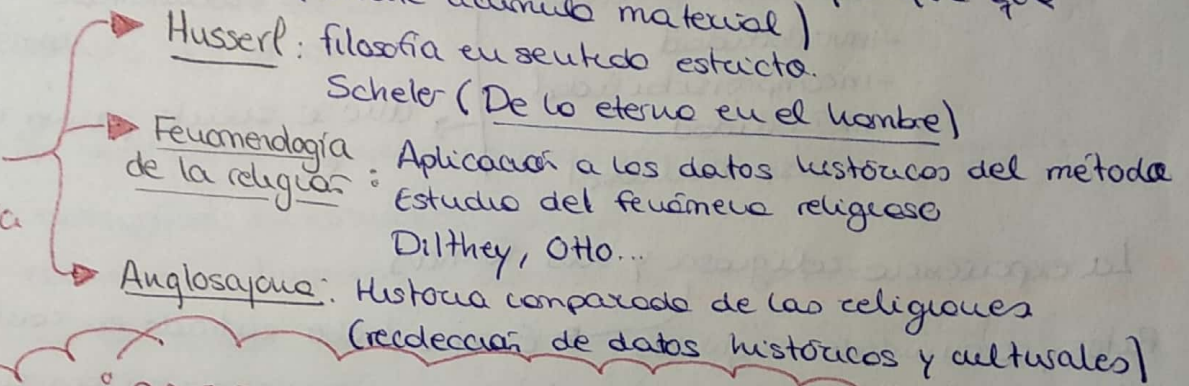 acúmulo material)
Husserl: filosofía en sentido estricto.
Scheler (De lo eterno en el hombre)
Fenomenología
de la religión: Aplicación a los datos históricos del método
Estudio del fenómeno religioso
a
Dilthey, Otto...
Anglosajona: Historia comparada de las religiones
(recolección de datos históricos y culturales)